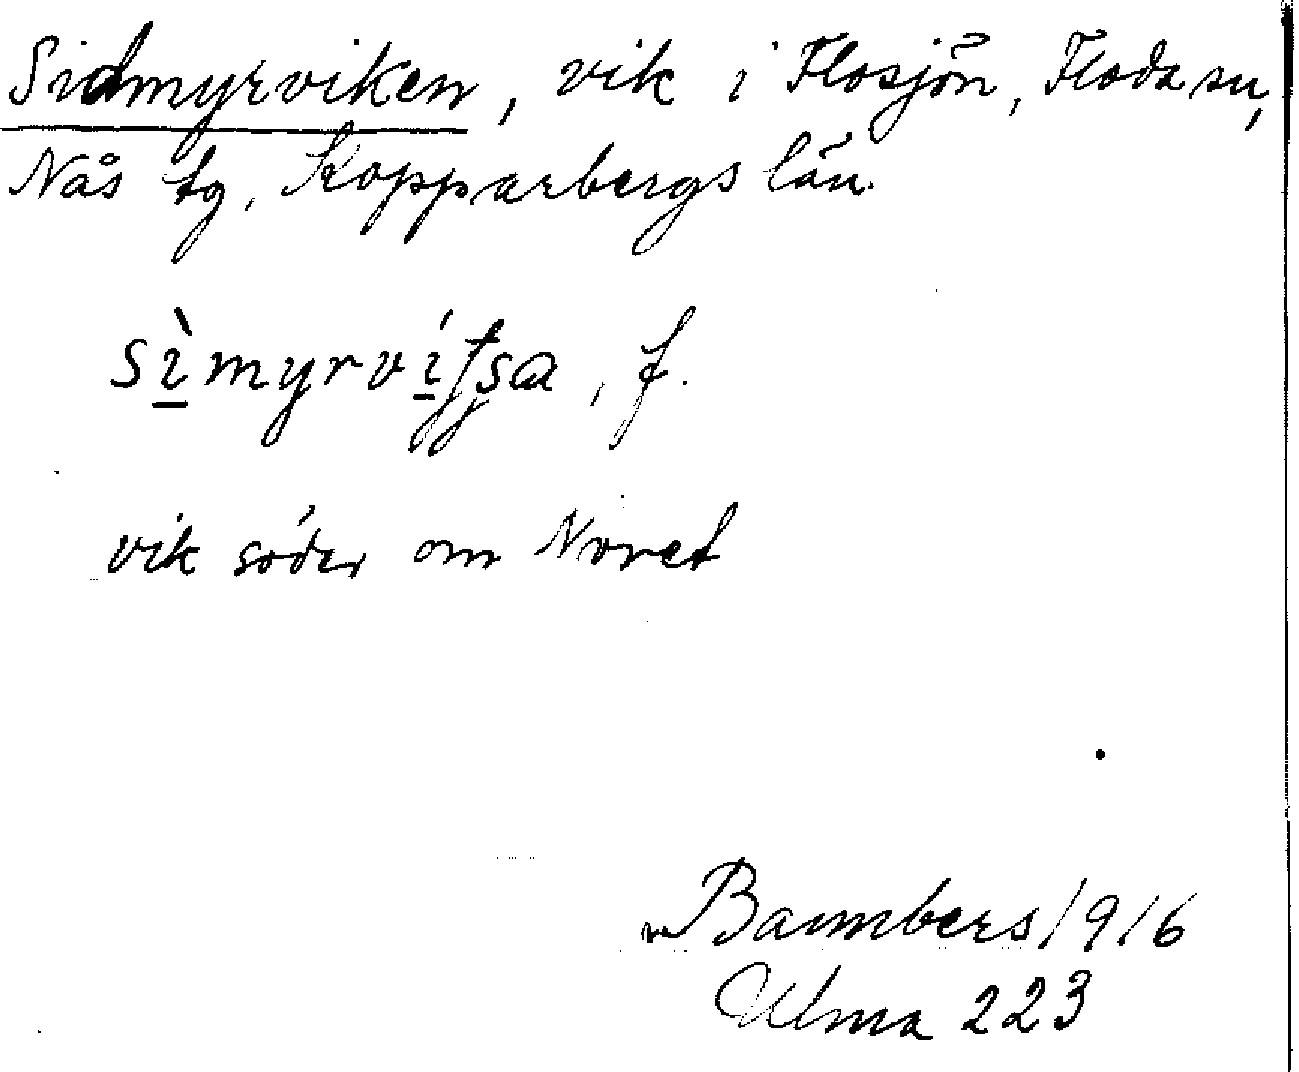 Sidmyrviken, vik i Flosjön, Floda sn,
Nås tg, Kopparbergs län.
sì̱myrví̱tʂa, f.
vik söder om Noret
Baumbers 1916
Ulma 223